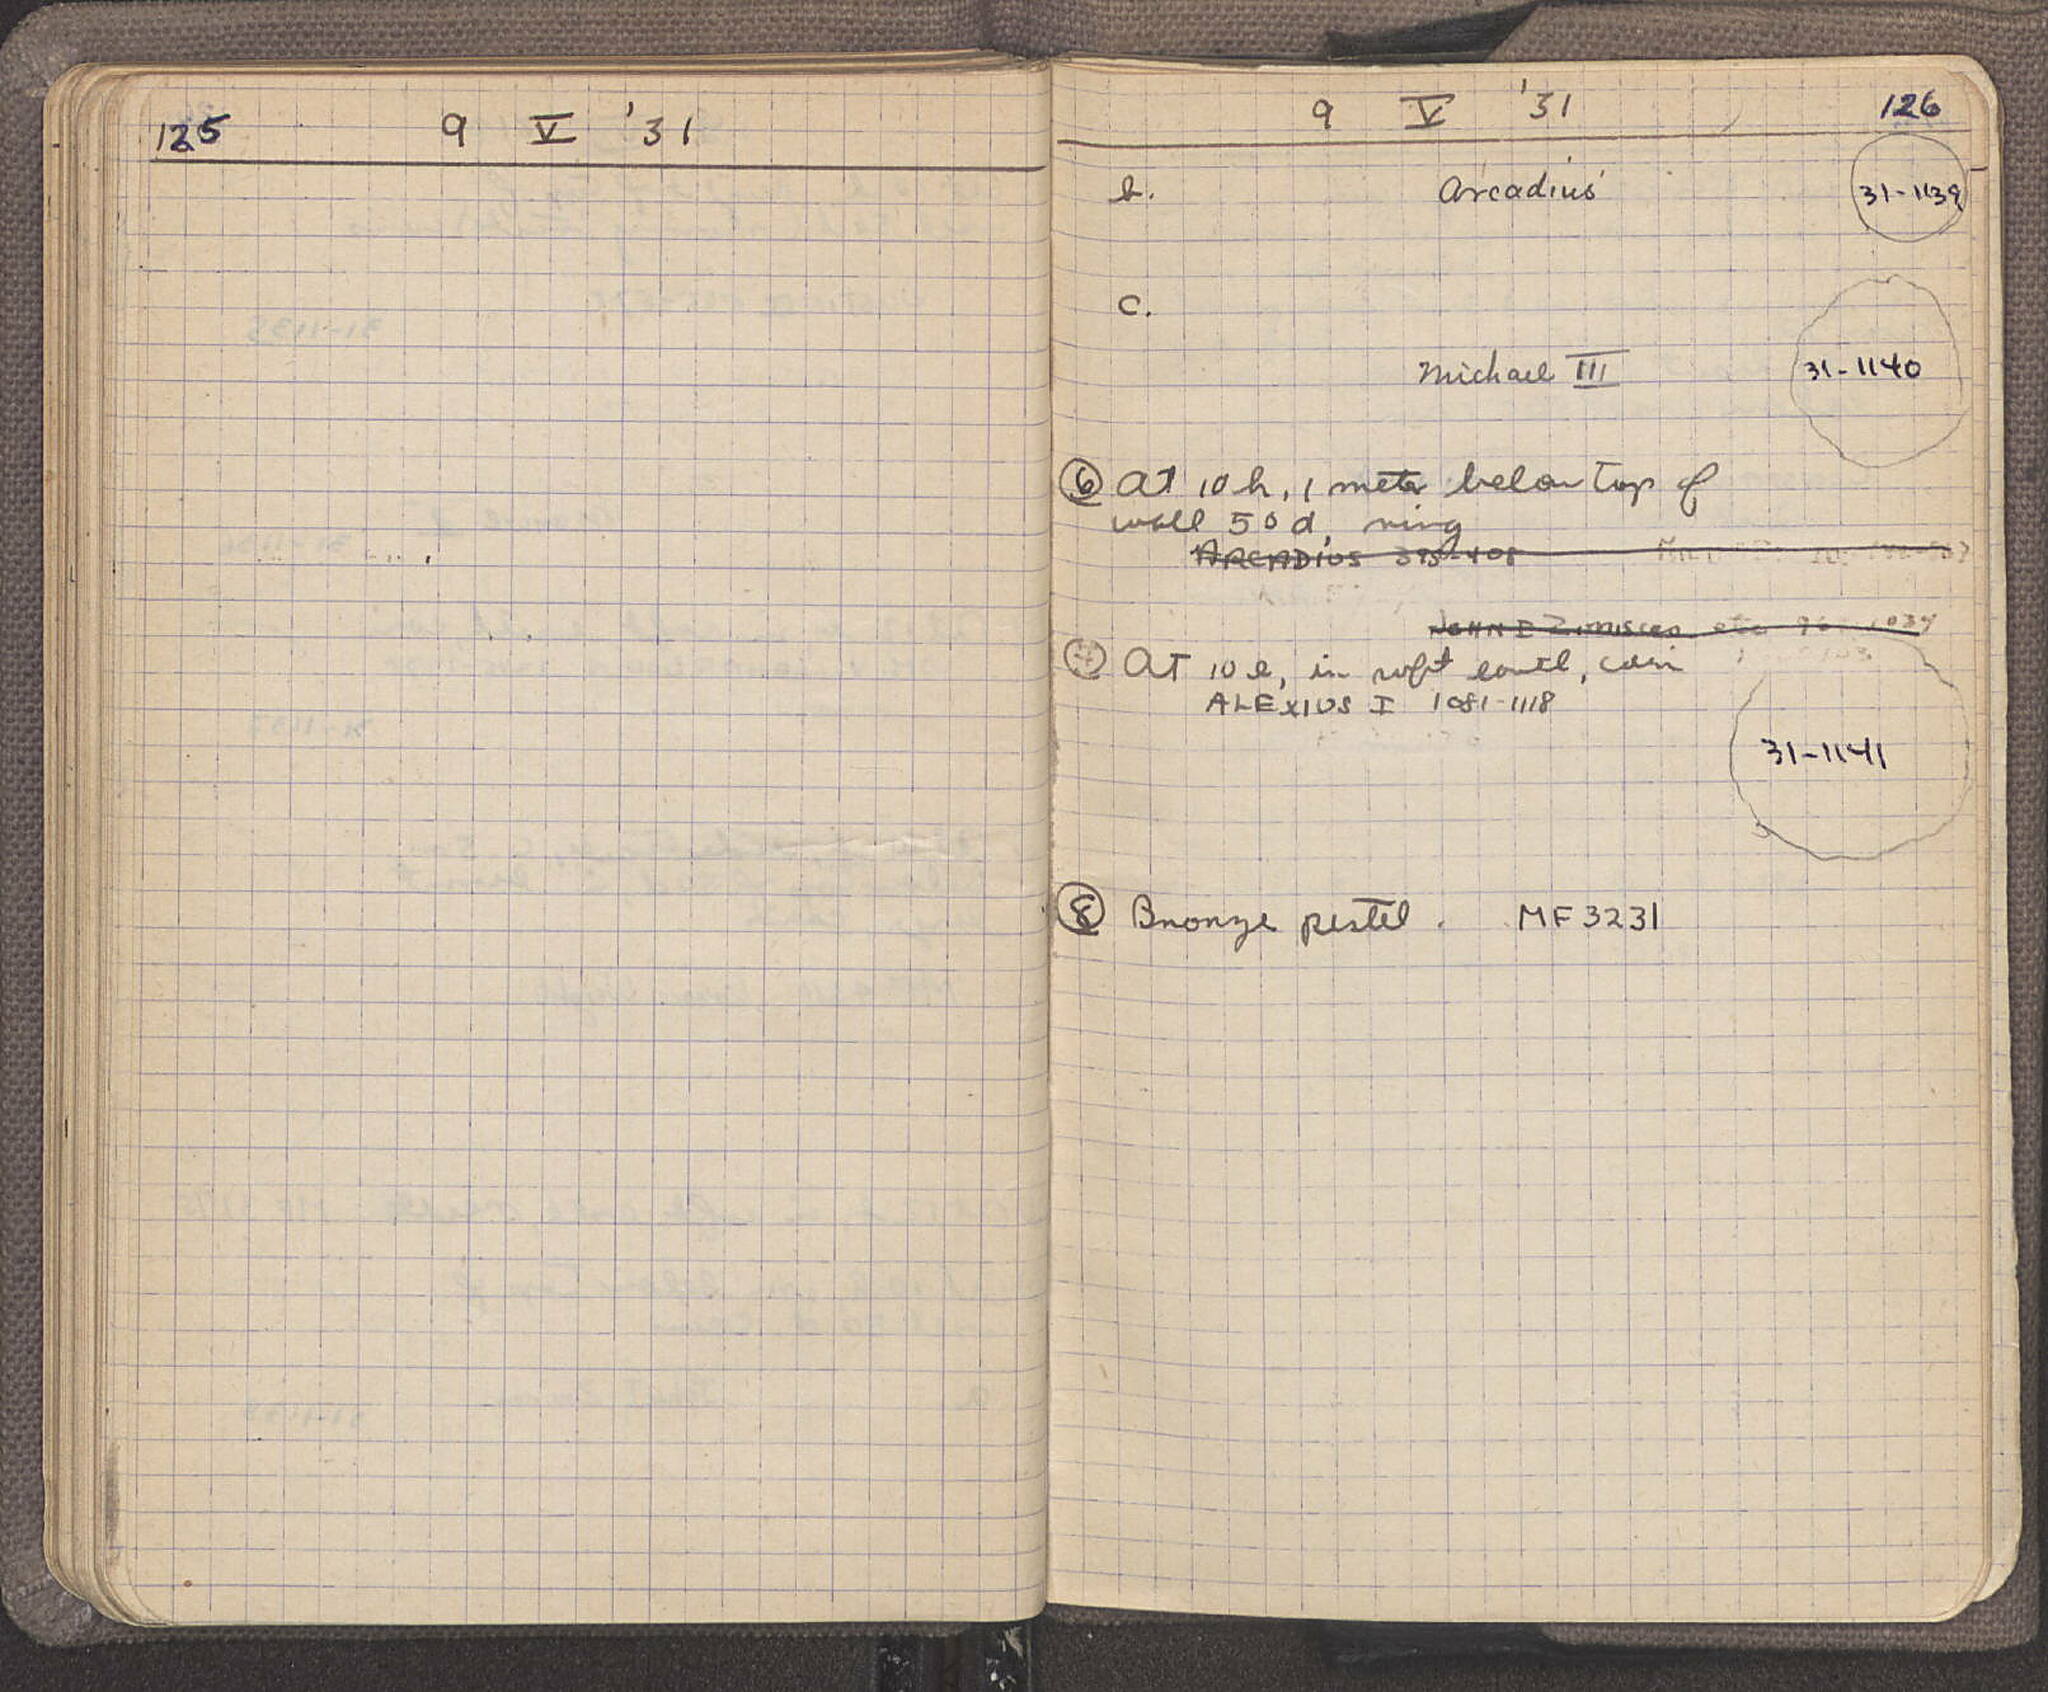 125 9 V '31
9 V '31 126
b. Arcadius 31-1139
c.
Michael III 31-1140
6 At 10 h, 1 meter below top of
wall 50 d, ring
ARCADIUS 395-408
JOHN I Zimisces etc
7 At 10 e, in soft earth, coin
ALEXIUS I 1081-1118
31-1141
8 Bronze pestel. MF 3231